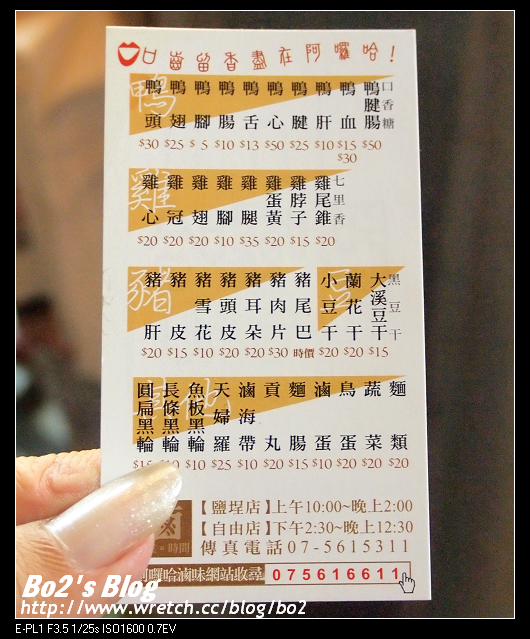 口齒留香盡在阿囉哈!
鴨
鴨頭
鴨翅
鴨腳
鴨腸
鴨舌
鴨心
鴨腱
鴨肝
鴨血
鴨腱腸
口香糖
$30 $25 $5 $10 $13 $50 $25 $10 $15 $50
$30
雞
雞心
雞冠
雞翅
雞腳
雞腿
雞蛋黃
雞脖子
雞尾錐
七里香
$20 $20 $20 $10 $35 $20 $15 $20
豬
豬肝
豬皮
豬雪花
豬頭皮
豬耳朵
豬肉片
豬尾巴
豆
小豆干
蘭花干
大溪豆干
黑豆干
$20 $15 $10 $20 $20 $30 時價 $20 $20 $15
其他
圓扁黑輪
長條黑輪
魚板黑輪
天婦羅
滷海帶
貢丸
麵腸
滷蛋
鳥蛋
蔬菜
麵類
$15 $10 $10 $25 $10 $20 $15 $10 $20 $20 $20
時間
【鹽埕店】上午10:00~晚上2:00
【自由店】下午2:30~晚上12:30
傳真電話07-5615311
阿囉哈滷味網站收尋 075616611
Bo2's Blog
http://www.wretch.cc/blog/bo2
E-PL1 F3.5 1/25s ISO1600 0.7EV